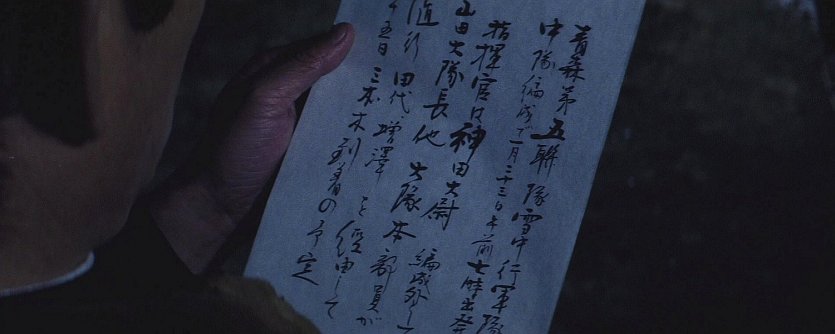 青森第五聯隊雪中行軍隊
中隊編成で一月二十三日午前七時出発
指揮官は神田大尉
山田大隊長他大隊本部員が
編成外として
随行田代、増澤を経由して
十五日三本木到着の予定